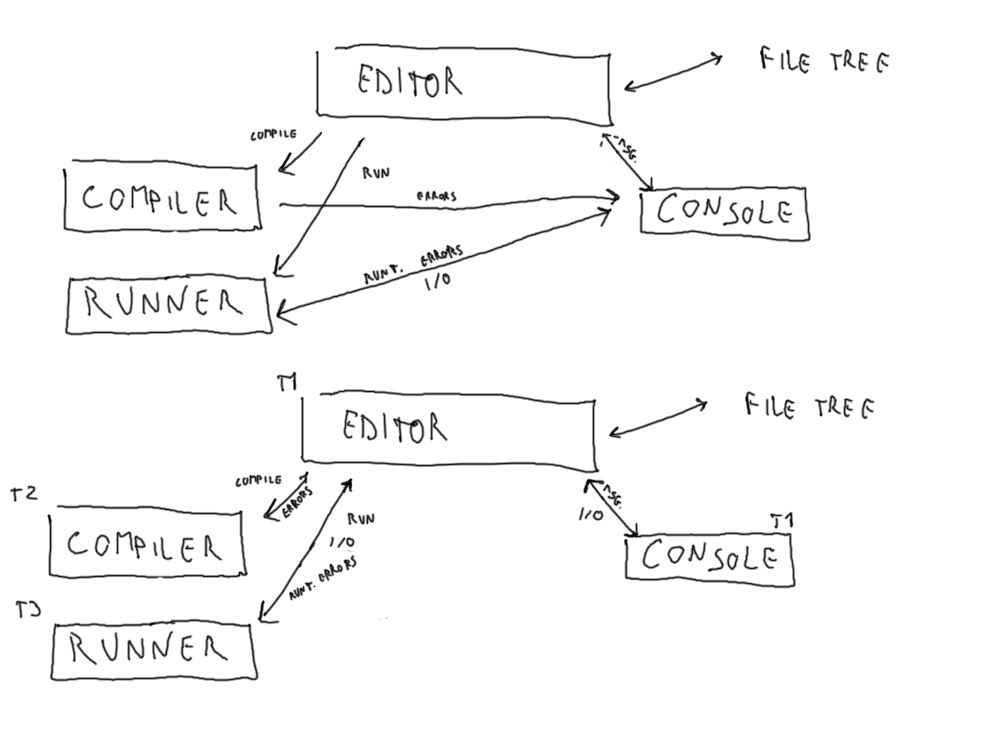 EDITOR
FILE TREE
COMPILE
MSG.
RUN
COMPILER
ERRORS
CONSOLE
RUNT. ERRORS
I/O
RUNNER
T1
EDITOR
FILE TREE
COMPILE
ERRORS
MSG.
T2
RUN
I/O
I/O
T1
COMPILER
CONSOLE
RUNT. ERRORS
T3
RUNNER